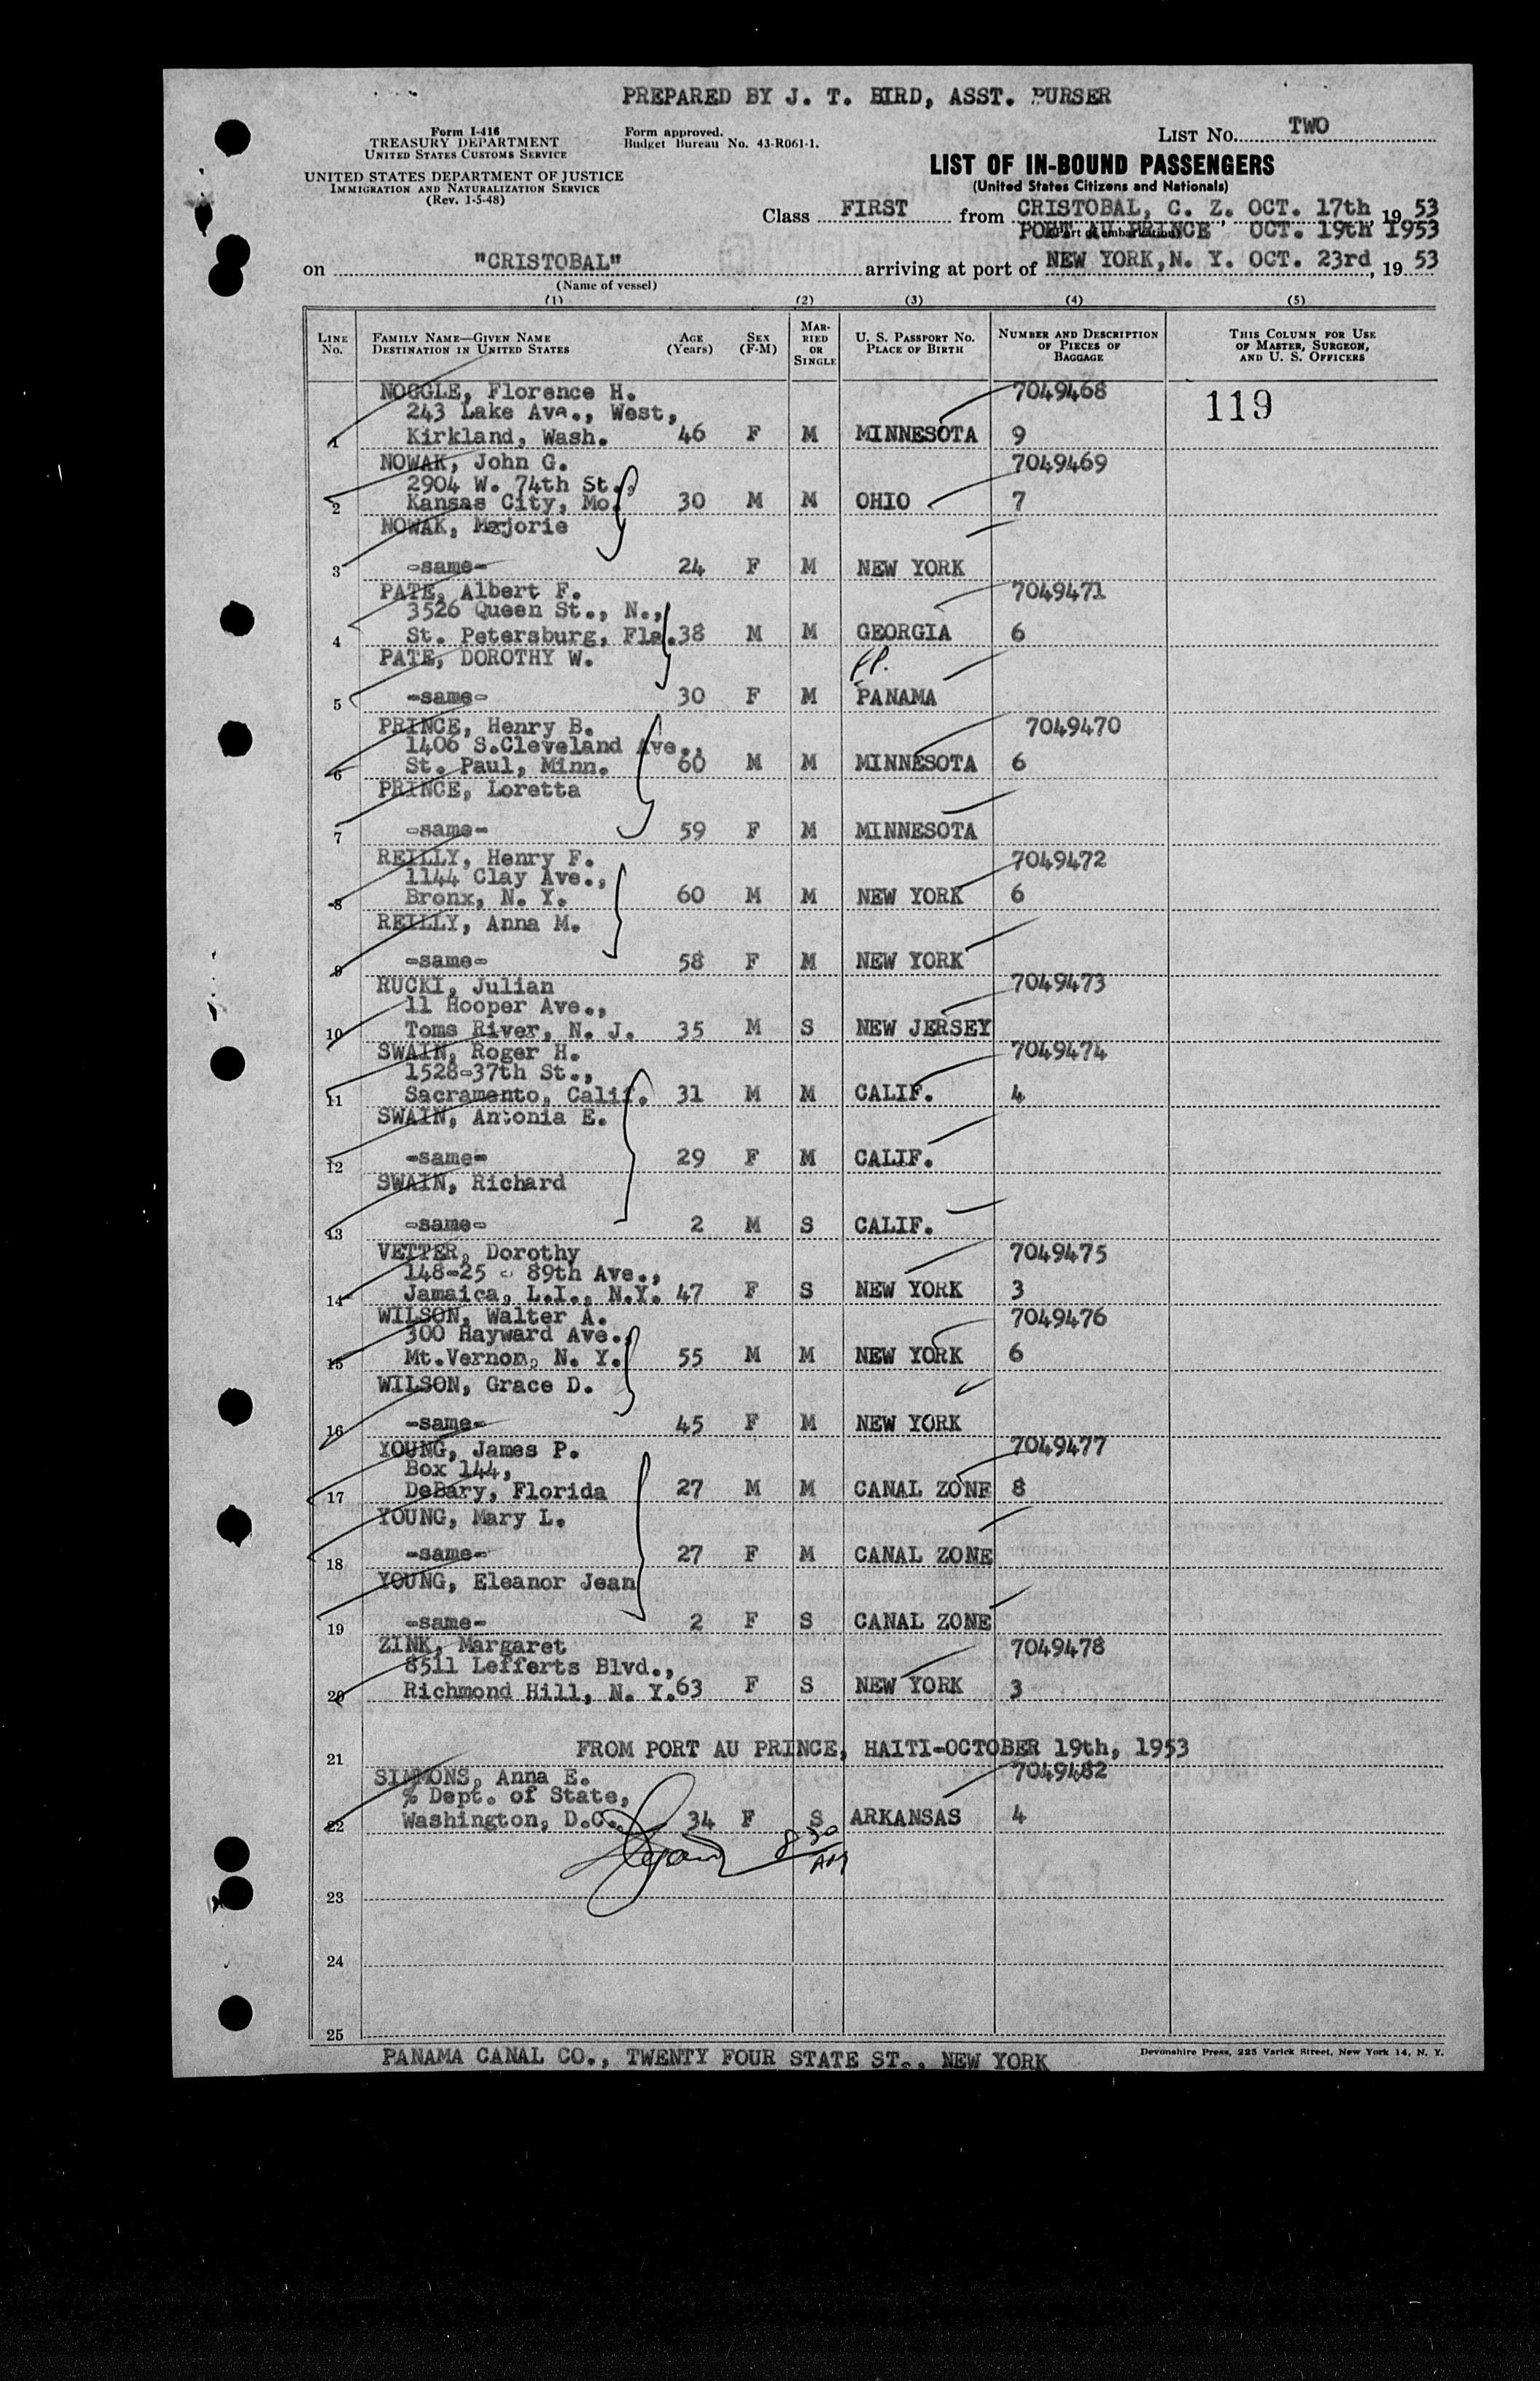 PREPARED BY J. T. BIRD, ASST. PURSER
Form I-416
TREASURY DEPARTMENT
UNITED STATES CUSTOMS SERVICE
UNITED STATES DEPARTMENT OF JUSTICE
IMMIGRATION AND NATURALIZATION SERVICE
(Rev. 1-5-48)
Form approved.
Budget Bureau No. 43-R061-1.
LIST No. TWO
LIST OF IN-BOUND PASSENGERS
(United States Citizens and Nationals)
Class FIRST from CRISTOBAL, C. Z. OCT. 17th, 19 53
(Port of embarkation)
PORT AU PRINCE OCT. 19th 1953
on "CRISTOBAL" arriving at port of NEW YORK, N. Y. OCT. 23rd, 19 53
(Name of vessel)
(1) (2) (3) (4) (5)
LINE No.
FAMILY NAME—GIVEN NAME
DESTINATION IN UNITED STATES
AGE (Years)
SEX (F-M)
MARRIED OR SINGLE
U. S. PASSPORT NO.
PLACE OF BIRTH
NUMBER AND DESCRIPTION OF PIECES OF BAGGAGE
THIS COLUMN FOR USE OF MASTER, SURGEON, AND U. S. OFFICERS
NOGGLE, Florence H. 7049468 119
243 Lake Ave., West,
1 Kirkland, Wash. 46 F M MINNESOTA 9
NOWAK, John G. 7049469
2904 W. 74th St.,
2 Kansas City, Mo. 30 M M OHIO 7
NOWAK, Marjorie
3 -same- 24 F M NEW YORK
PATE, Albert F. 7049471
3526 Queen St., N.,
4 St. Petersburg, Fla. 38 M M GEORGIA 6
PATE, DOROTHY W.
5 -same- 30 F M PANAMA
PRINCE, Henry B. 7049470
1406 S.Cleveland Ave.,
6 St. Paul, Minn. 60 M M MINNESOTA 6
PRINCE, Loretta
7 -same- 59 F M MINNESOTA
REILLY, Henry F. 7049472
1144 Clay Ave.,
8 Bronx, N. Y. 60 M M NEW YORK 6
REILLY, Anna M.
9 -same- 58 F M NEW YORK
RUCKI, Julian 7049473
11 Hooper Ave.,
10 Toms River, N. J. 35 M S NEW JERSEY
SWAIN, Roger H. 7049474
1528-37th St.,
11 Sacramento, Calif. 31 M M CALIF. 4
SWAIN, Antonia E.
12 -same- 29 F M CALIF.
SWAIN, Richard
13 -same- 2 M S CALIF.
VETTER, Dorothy 7049475
148-25 - 89th Ave.,
14 Jamaica, L.I., N.Y. 47 F S NEW YORK 3
WILSON, Walter A. 7049476
300 Hayward Ave.,
15 Mt.Vernon, N. Y. 55 M M NEW YORK 6
WILSON, Grace D.
16 -same- 45 F M NEW YORK
YOUNG, James P. 7049477
Box 144,
17 DeBary, Florida 27 M M CANAL ZONE 8
YOUNG, Mary L.
18 -same- 27 F M CANAL ZONE
YOUNG, Eleanor Jean
19 -same- 2 F S CANAL ZONE
ZINK, Margaret 7049478
8511 Lefferts Blvd.,
20 Richmond Hill, N. Y. 63 F S NEW YORK 3
21 FROM PORT AU PRINCE, HAITI-OCTOBER 19th, 1953
SIMMONS, Anna E. 7049482
% Dept. of State,
22 Washington, D.C. 34 F S ARKANSAS 4
8 30 AM
23
24
25
PANAMA CANAL CO., TWENTY FOUR STATE ST., NEW YORK
Devonshire Press, 225 Varick Street, New York 14, N. Y.